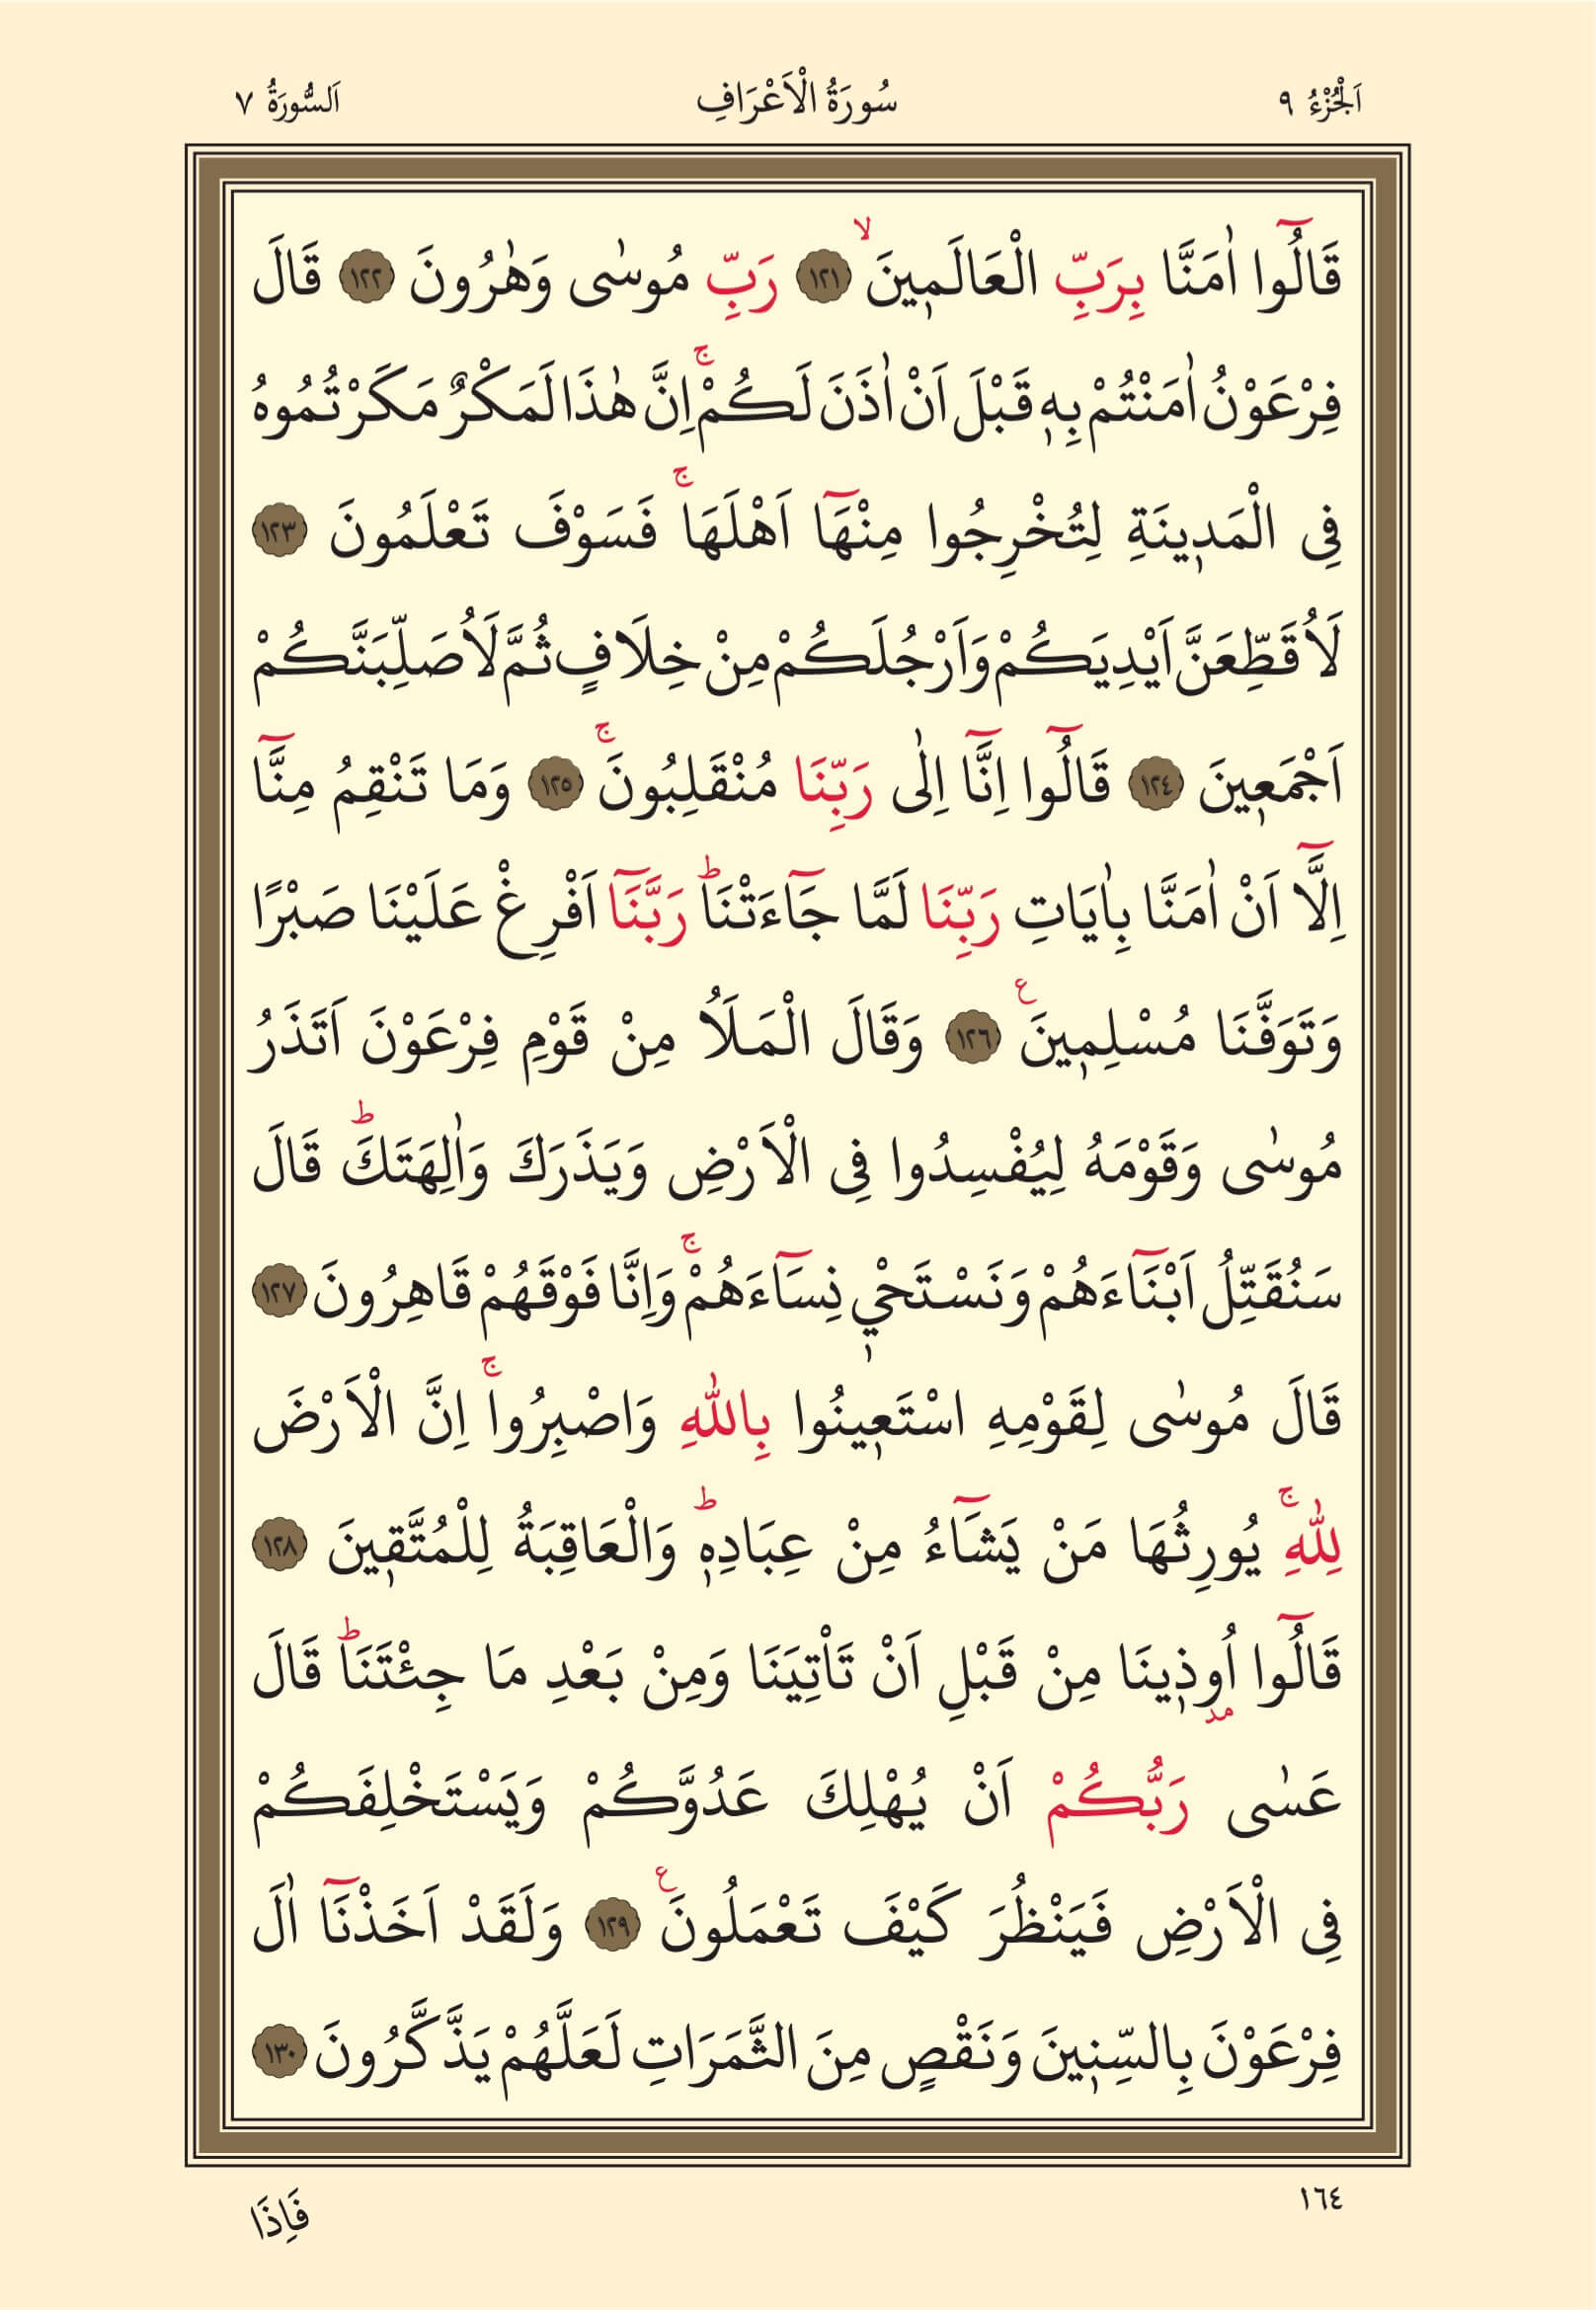 اَلْجُزْءُ ٩ سُورَةُ الْاَعْرَافِ اَلسُّورَةُ ٧
قَالُٓوا اٰمَنَّا بِرَبِّ الْعَالَمٖينَۙ ١٢١ رَبِّ مُوسٰى وَهٰرُونَ ١٢٢ قَالَ
فِرْعَوْنُ اٰمَنْتُمْ بِهٖ قَبْلَ اَنْ اٰذَنَ لَكُمْۚ اِنَّ هٰذَا لَمَكْرٌ مَكَرْتُمُوهُ
فِى الْمَدٖينَةِ لِتُخْرِجُوا مِنْهَٓا اَهْلَهَاۚ فَسَوْفَ تَعْلَمُونَ ١٢٣
لَاُقَطِّعَنَّ اَيْدِيَكُمْ وَاَرْجُلَكُمْ مِنْ خِلَافٍ ثُمَّ لَاُصَلِّبَنَّكُمْ
اَجْمَعٖينَ ١٢٤ قَالُٓوا اِنَّٓا اِلٰى رَبِّنَا مُنْقَلِبُونَۚ ١٢٥ وَمَا تَنْقِمُ مِنَّٓا
اِلَّٓا اَنْ اٰمَنَّا بِاٰيَاتِ رَبِّنَا لَمَّا جَٓاءَتْنَاؕ رَبَّنَٓا اَفْرِغْ عَلَيْنَا صَبْرًا
وَتَوَفَّنَا مُسْلِمٖينَࣖ ١٢٦ وَقَالَ الْمَلَاُ مِنْ قَوْمِ فِرْعَوْنَ اَتَذَرُ
مُوسٰى وَقَوْمَهُ لِيُفْسِدُوا فِى الْاَرْضِ وَيَذَرَكَ وَاٰلِهَتَكَؕ قَالَ
سَنُقَتِّلُ اَبْنَٓاءَهُمْ وَنَسْتَحْيٖ نِسَٓاءَهُمْۚ وَاِنَّا فَوْقَهُمْ قَاهِرُونَ ١٢٧
قَالَ مُوسٰى لِقَوْمِهِ اسْتَعٖينُوا بِاللّٰهِ وَاصْبِرُواۚ اِنَّ الْاَرْضَ
لِلّٰهِۚ يُورِثُهَا مَنْ يَشَٓاءُ مِنْ عِبَادِهٖؕ وَالْعَاقِبَةُ لِلْمُتَّقٖينَ ١٢٨
قَالُٓوا اُو۫ذٖينَا مِنْ قَبْلِ اَنْ تَاْتِيَنَا وَمِنْ بَعْدِ مَا جِئْتَنَاؕ قَالَ
عَسٰى رَبُّكُمْ اَنْ يُهْلِكَ عَدُوَّكُمْ وَيَسْتَخْلِفَكُمْ
فِى الْاَرْضِ فَيَنْظُرَ كَيْفَ تَعْمَلُونَࣖ ١٢٩ وَلَقَدْ اَخَذْنَٓا اٰلَ
فِرْعَوْنَ بِالسِّنٖينَ وَنَقْصٍ مِنَ الثَّمَرَاتِ لَعَلَّهُمْ يَذَّكَّرُونَ ١٣٠
١٦٤
فَاِذَا